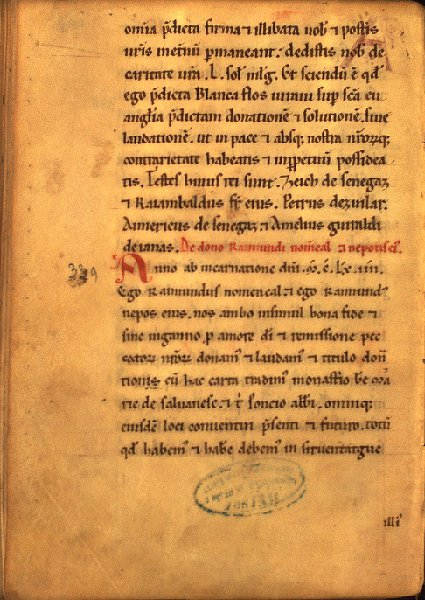 omia p̄dicta firma et illibata nob̄ et postis
nr̄is inet̄nū p̄maneant. dedistis nob̄ de
caritate ur̄a .L. sol̄ mlg̃. Et sciendū ē qd̄
ego p̄dicta Blanca flos iuraui sup̄ sc̄a eu
anglia p̄dictam donationē et solutionē. siue
laudationē. ut in pace et absq; nostra nr̄orq;
contrarietate habeatis et inp̄petuū possidea
tis. Testes huius rei sunt.
et Raiambaldus fr̄ eius. Petrus
Aimericus de senegaz et Amelius guiraldi
de ianas. De dono Raimundi et nepotis
Anno ab incarnatione dn̄i .M̄. C̄.
Ego Raimundus et ego Raimund'
nepos eius. nos ambo insimul bona fide et
sine inganno p̄ amore dī et remissione pec
catorꝝ nr̄orꝝ donam' et laudam' et titulo don̄
tionis cū hac carta tradim' monast̄io be̅ ma
rie de saluanesc. et t̄ Poncio abb̄i. om̄ibq;
eiusdē loci conuentui p̄senti et futuro. totū
qd̄ habem' et habe̅ debem' in siruentatgue
illi'